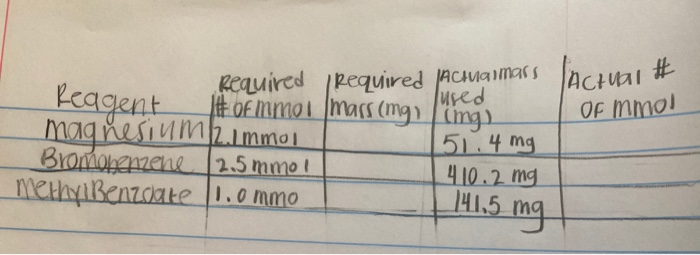 Reagent | Required # of mmol | Required mass (mg) | Actual mass used (mg) | Actual # of mmol
Magnesium | 2.1 mmol | | 51.4 mg |
Bromobenzene | 2.5 mmol | | 410.2 mg |
MethylBenzoate | 1.0 mmo | | 141.5 mg |